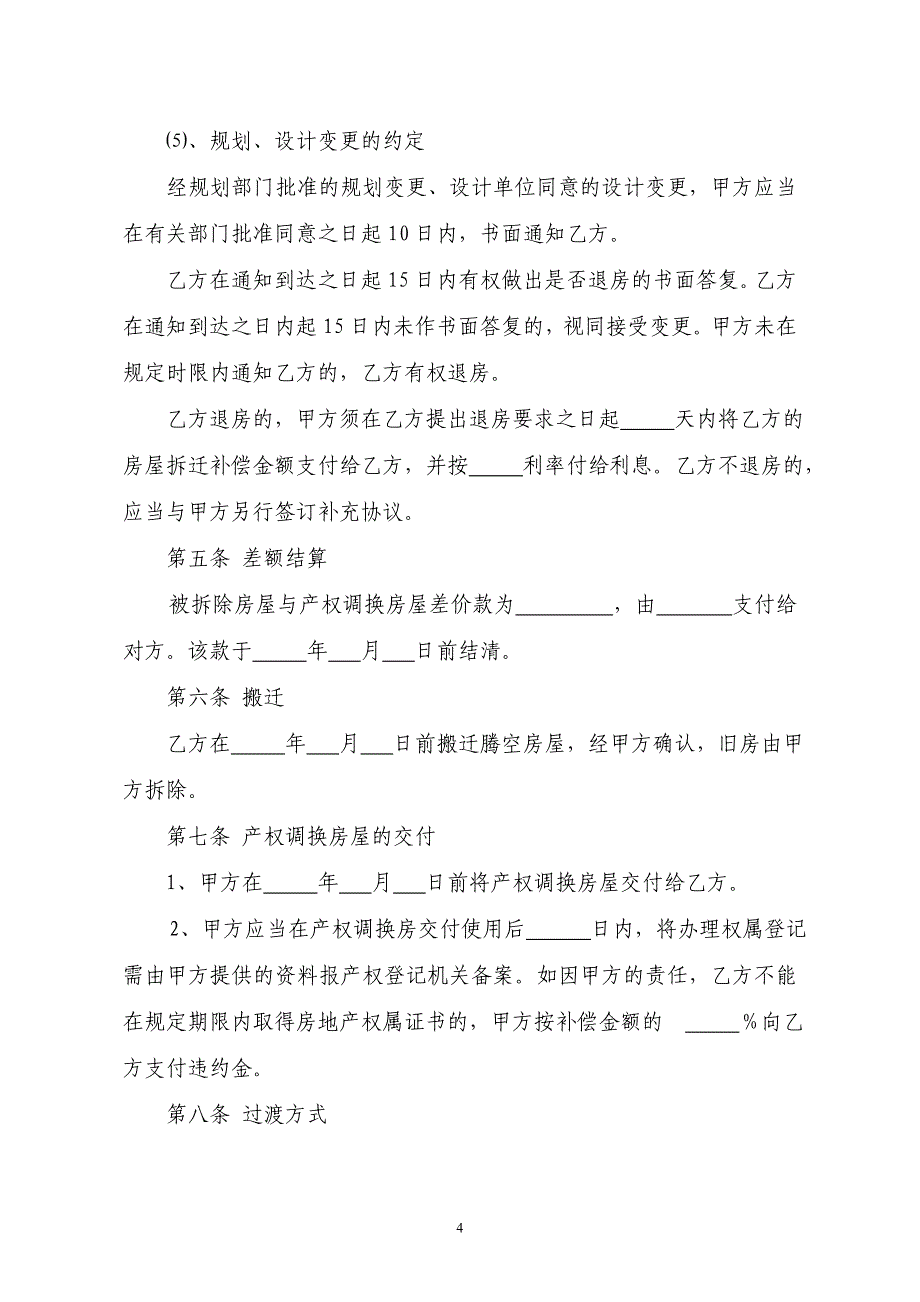 ⑸、规划、设计变更的约定
经规划部门批准的规划变更、设计单位同意的设计变更，甲方应当
在有关部门批准同意之日起 10 日内，书面通知乙方。
乙方在通知到达之日起 15 日内有权做出是否退房的书面答复。乙方
在通知到达之日内起 15 日内未作书面答复的，视同接受变更。甲方未在
规定时限内通知乙方的，乙方有权退房。
乙方退房的，甲方须在乙方提出退房要求之日起_____天内将乙方的
房屋拆迁补偿金额支付给乙方，并按_____利率付给利息。乙方不退房的，
应当与甲方另行签订补充协议。
第五条 差额结算
被拆除房屋与产权调换房屋差价款为_________，由_______支付给
对方。该款于_____年___月___日前结清。
第六条 搬迁
乙方在_____年___月___日前搬迁腾空房屋，经甲方确认，旧房由甲
方拆除。
第七条 产权调换房屋的交付
1、甲方在_____年___月___日前将产权调换房屋交付给乙方。
2、甲方应当在产权调换房交付使用后______日内，将办理权属登记
需由甲方提供的资料报产权登记机关备案。如因甲方的责任，乙方不能
在规定期限内取得房地产权属证书的，甲方按补偿金额的 _____%向乙
方支付违约金。
第八条 过渡方式
4